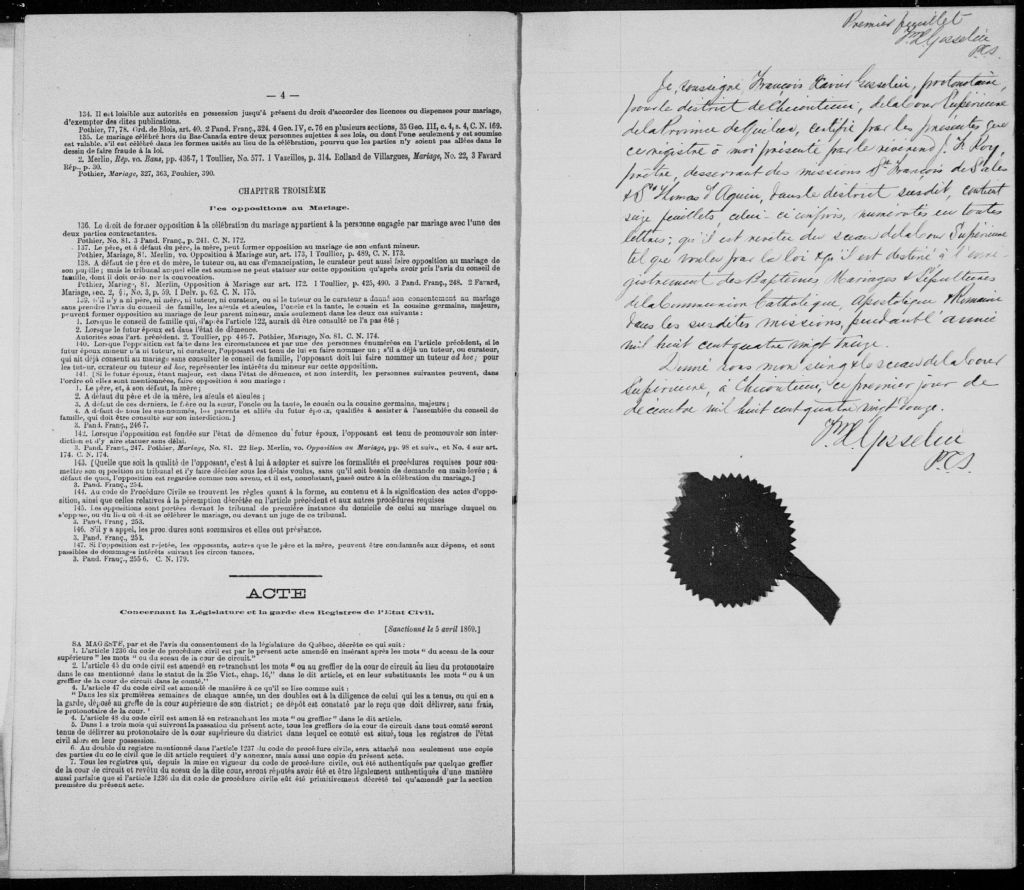 — 4 —
134. Il est loisible aux autorités en possession jusqu'à présent du droit d'accorder des licences ou dispenses pour mariage,
d'exempter des dites publications.
Pothier, 77, 78. Ord. de Blois, art. 40. 2 Pand. Franç., 324. 4 Geo. IV, c. 76 en plusieurs sections, 35 Geo. III, c. 4, s. 4, C. N. 169.
135. Le mariage célébré hors du Bas-Canada entre deux personnes sujettes à ses lois, ou dont l'une seulement y est soumise
est valable, s'il est célébré dans les formes usités au lieu de la célébration, pourvu que les parties n'y soient pas allées dans le
dessin de faire fraude à la loi.
2, Merlin, Rép. vo. Bans, pp. 436-7, 1 Toullier, No. 577. 1 Vazeilles, p. 314. Rolland de Villargues, Mariage, No. 22, 3 Favard
Rép., p. 30.
Pothier, Mariage, 327, 363, Pouhier, 390.
CHAPITRE TROISIÈME
Des oppositions au Mariage.
136. Le droit de former opposition à la célébration du mariage appartient à la personne engagée par mariage avec l'une des
deux parties contractantes.
Pothier, No. 81. 3 Pand. Franç., p. 241. C. N. 172.
137. Le père, et à défaut du père, la mère, peut former opposition au mariage de son enfant mineur.
Pothier, Mariage, 81. Merlin, vo. Opposition à Mariage sur, art. 173, 1 Toullier, p. 489, C. N. 173.
138. A défaut de père et de mère, le tuteur ou, au cas d'émancipation, le curateur peut aussi faire opposition au mariage de
son pupille; mais le tribunal auquel elle est soumise ne peut statuer sur cette opposition qu'après avoir pris l'avis du conseil de
famille, dont il doit ordonner la convocation.
Pothier, Mariage, 81, Merlin, Opposition à Mariage sur art. 172. 1 Toullier, p. 425, 490. 3 Pand. Franç., 248. 2 Favard,
Mariage, sec. 2, §1, No. 3, p. 59. 1 Delv. p. 63. C. N. 175.
139. S'il n'y a ni père, ni mère, ni tuteur, ni curateur, ou si le tuteur ou le curateur a donné son consentement au mariage
sans prendre l'avis du conseil de famille, les aïeuls et aïeules, l'oncle et la tante, le cousin et la cousine germains, majeurs,
peuvent former opposition au mariage de leur parent mineur, mais seulement dans les deux cas suivants:
1. Lorsque le conseil de famille qui, d'après l'article 122, aurait dû être consulté ne l'a pas été;
2. Lorsque le futur époux est dans l'état de démence.
Autorités sous l'art. précédent. 2. Toullier, pp 446-7. Pothier, Mariage, No. 81. C. N. 174.
140. Lorsque l'opposition est faite dans les circonstances et par une des personnes énumérées en l'article précédent, si le
futur époux mineur n'a ni tuteur, ni curateur, l'opposant est tenu de lui en faire nommer un; s'il a déjà un tuteur, ou curateur,
qui ait déjà consenti au mariage sans consulter le conseil de famille, l'opposant doit lui faire nommer un tuteur ad hoc; pour
les tuteur, curateur ou tuteur ad hoc, représenter les intérêts du mineur sur cette opposition.
141. [Si le futur époux, étant majeur, est dans l'état de démence, et non interdit, les personnes suivantes peuvent, dans
l'ordre où elles sont mentionnées, faire opposition à son mariage:
1. Le père, et, à son défaut, la mère;
2. A défaut du père et de la mère, les aïeuls et aïeules;
3. A défaut de ces derniers, le frère ou la sœur, l'oncle ou la tante, le cousin ou la cousine germains, majeurs;
4. A défaut de tous les sus-nommés, les parents et alliés du futur époux, qualifiés à assister à l'assemblée du conseil de
famille, qui doit être consulté sur son interdiction.]
3. Pand. Franç., 246 7.
142. Lorsque l'opposition est fondée sur l'état de démence du futur époux, l'opposant est tenu de promouvoir son inter-
diction et d'y faire statuer sans délai.
3. Pand. Franç., 247. Pothier, Mariage, No. 81. 22 Rep. Merlin, vo. Opposition au Mariage, pp. 98 et suiv., et No. 4 sur art.
174. C. N. 174.
143. [Quelle que soit la qualité de l'opposant, c'est à lui à adopter et suivre les formalités et procédures requises pour sou-
mettre son opposition au tribunal et l'y faire décider sous les délais voulus, sans qu'il soit besoin de demande en main-levée; à
défaut de quoi, l'opposition est regardée comme non avenu, et il est, nonobstant, passé outre à la célébration du mariage.]
3. Pand. Franç., 254.
144. Au code de Procédure Civile se trouvent les règles quant à la forme, au contenu et à la signification des actes d'oppo-
sition, ainsi que celles relatives à la péremption décrétée en l'article précédent et aux autres procédures requises
145. Les oppositions sont portées devant le tribunal de première instance du domicile de celui au mariage duquel on
s'oppose, ou du lieu où doit se célébrer le mariage, ou devant un juge de ce tribunal.
3. Pand. Franç., 253.
146. S'il y a appel, les procédures sont sommaires et elles ont préséance.
3. Pand. Franç., 253.
147. Si l'opposition est rejetée, les opposants, autres que le père et la mère, peuvent être condamnés aux dépens, et sont
passibles de dommages intérêts suivant les circonstances.
3. Pand. Franç., 255 6. C. N. 179.
ACTE
Concernant la Législature et la garde des Registres de l'Etat Civil.
[Sanctionné le 5 avril 1869.]
SA MAGESTÉ, par et de l'avis du consentement de la législature de Québec, décrète ce qui suit:
1. L'article 1236 du code de procédure civil est par le présent acte amendé en insérant après les mots " du sceau de la cour
supérieure " les mots " ou du sceau de la cour de circuit."
2. L'article 45 du code civil est amendé en retranchant les mots " ou au greffier de la cour de circuit au lieu du protonotaire
dans le cas mentionné dans le statut de la 25e Vict., chap. 16," dans le dit article, et en leur substituants les mots " ou à un
greffier de la cour de circuit dans le comté."
4. L'article 47 du code civil est amendé de manière à ce qu'il se lise comme suit:
" Dans les six premières semaines de chaque année, un des doubles est à la diligence de celui qui les a tenus, ou qui en a
la garde, déposé au greffe de la cour supérieure de son district; ce dépôt est constaté par le reçu que doit délivrer, sans frais,
le protonotaire de la cour. "
4. L'article 48 du code civil est amendé en retranchant les mots "ou greffier" dans le dit article.
5. Dans les trois mois qui suivront la passation du présent acte, tous les greffiers de la cour de circuit dans tout comté seront
tenus de délivrer au protonotaire de la cour supérieure du district dans lequel ce comté est situé, tous les registres de l'état
civil alors en leur possession.
6. Au double du registre mentionné dans l'article 1237 du code de procédure civile, sera attaché non seulement une copie
des parties du code civil que le dit article requiert d'y annexer, mais aussi une copie du présent acte.
7. Tous les registres qui, depuis la mise en vigueur du code de procédure civile, ont été authentiqués par quelque greffier
de la cour de circuit et revêtu du sceau de la dite cour, seront réputés avoir été et être légalement authentiqués d'une manière
aussi parfaite que si l'article 1236 du dit code de procédure civile eût été primitivement décrété tel qu'amendé par la section
première du présent acte.
Premier feuillet
F. X. Gosselin
P.C.S.
Je, soussigné, François Xavier Gosselin, protonotaire,
pour le district de Chicoutimi, de la Cour Supérieure
de la Province de Québec, certifie par les présentes que
ce registre à moi présenté par le révérend J. E. Roy,
prêtre, desservant des missions St François de Sales
& St Thomas d'Aquin, dans le district susdit, contient
seize feuillets, celui-ci compris, numérotés en toutes
lettres; qu'il est revêtu du sceau de la Cour Supérieure
tel que voulu par la loi & qu'il est destiné à l'enre-
gistrement des Baptêmes, Mariages & Sépultures
de la Communion Catholique, Apostolique & Romaine
dans les susdites missions, pendant l'année
mil huit cent quatre vingt treize.
Donné sous mon seing & le sceau de la Cour
Supérieure, à Chicoutimi, ce premier jour de
décembre mil huit cent quatre vingt douze.
F. X. Gosselin
P.C.S.